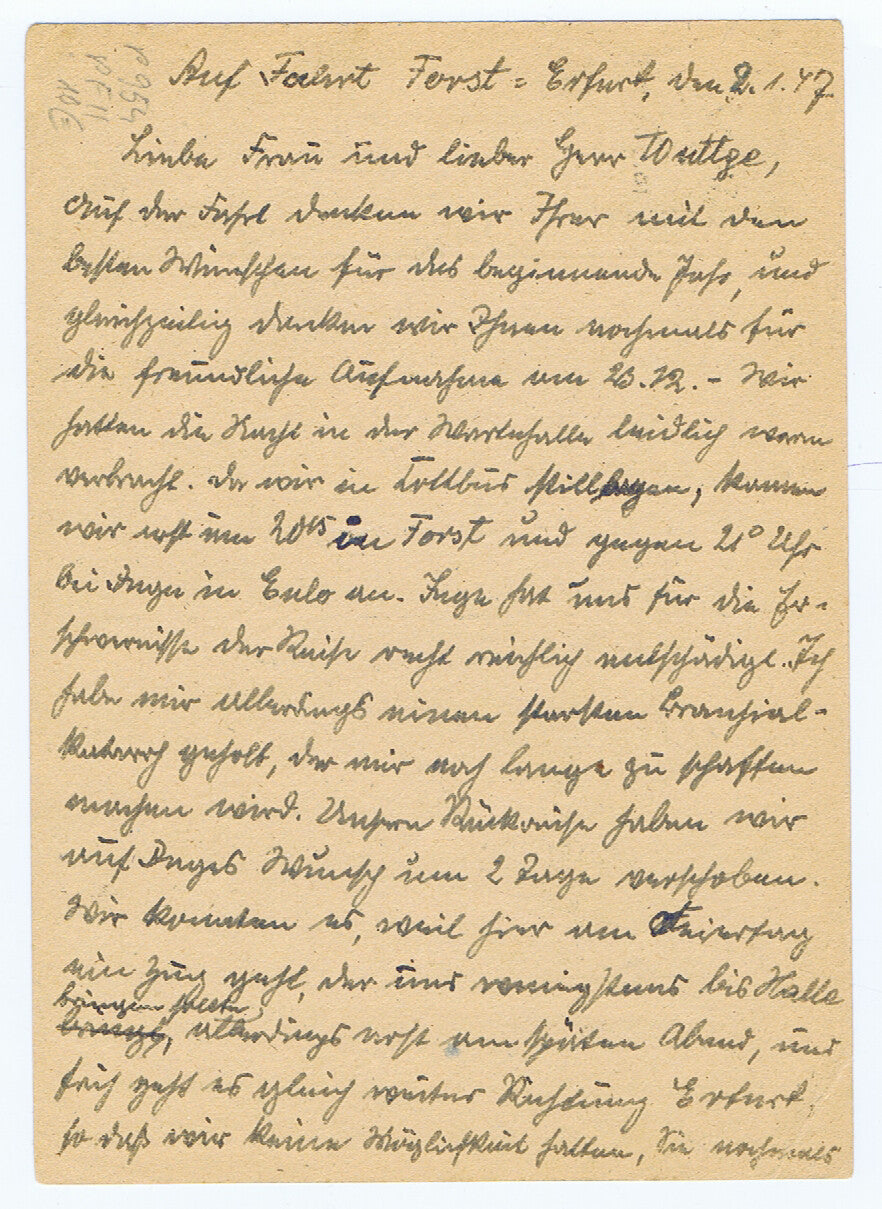 Auf Fahrt Forst = Erfurt, den 2. 1. 47.
Liebe Frau und lieber Herr Wuttge,
Auf der Fahrt denken wir Ihrer mit den
besten Wünschen für das beginnende Jahr, und
gleichzeitig danken wir Ihnen nochmals für
die freundliche Aufnahme am 23.12. - Wir
hatten die Nacht in der Wartehalle leidlich warm
verbracht. Da wir in Cottbus stilllagen, kamen
wir erst um 20¹⁵ in Forst und gegen 21⁰ Uhr
bei Inge in Eulo an. Inge hat uns für die Er-
schwernisse der Reise recht reichlich entschädigt. Ich
habe mir allerdings einen starken Bronchial-
katarrh geholt, der mir noch lange zu schaffen
machen wird. Unsere Rückreise haben wir
auf Inges Wunsch um 2 Tage verschoben.
Wir konnten es, weil hier am Feiertag
ein Zug geht, der uns wenigstens bis Halle
bringen sollte
bringt, allerdings erst am späten Abend, und
früh geht es gleich weiter Richtung Erfurt,
so daß wir keine Möglichkeit hatten, Sie nochmals